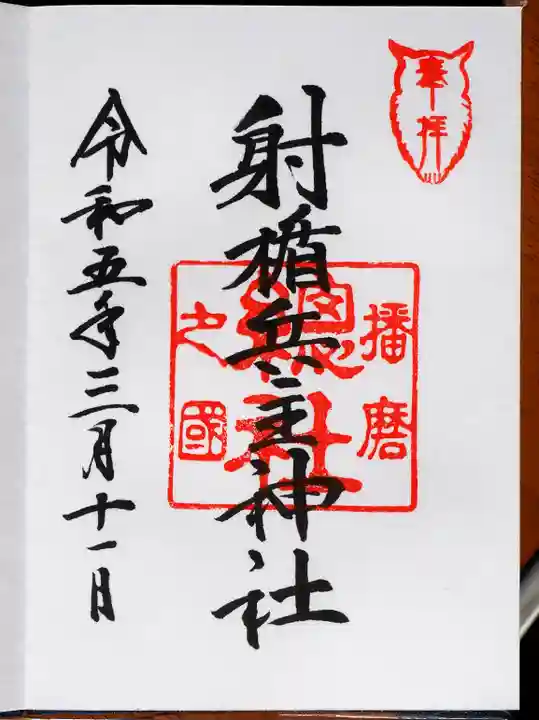 奉拝
播磨
射楯兵主神社
總社
之國
令和五年三月十一日